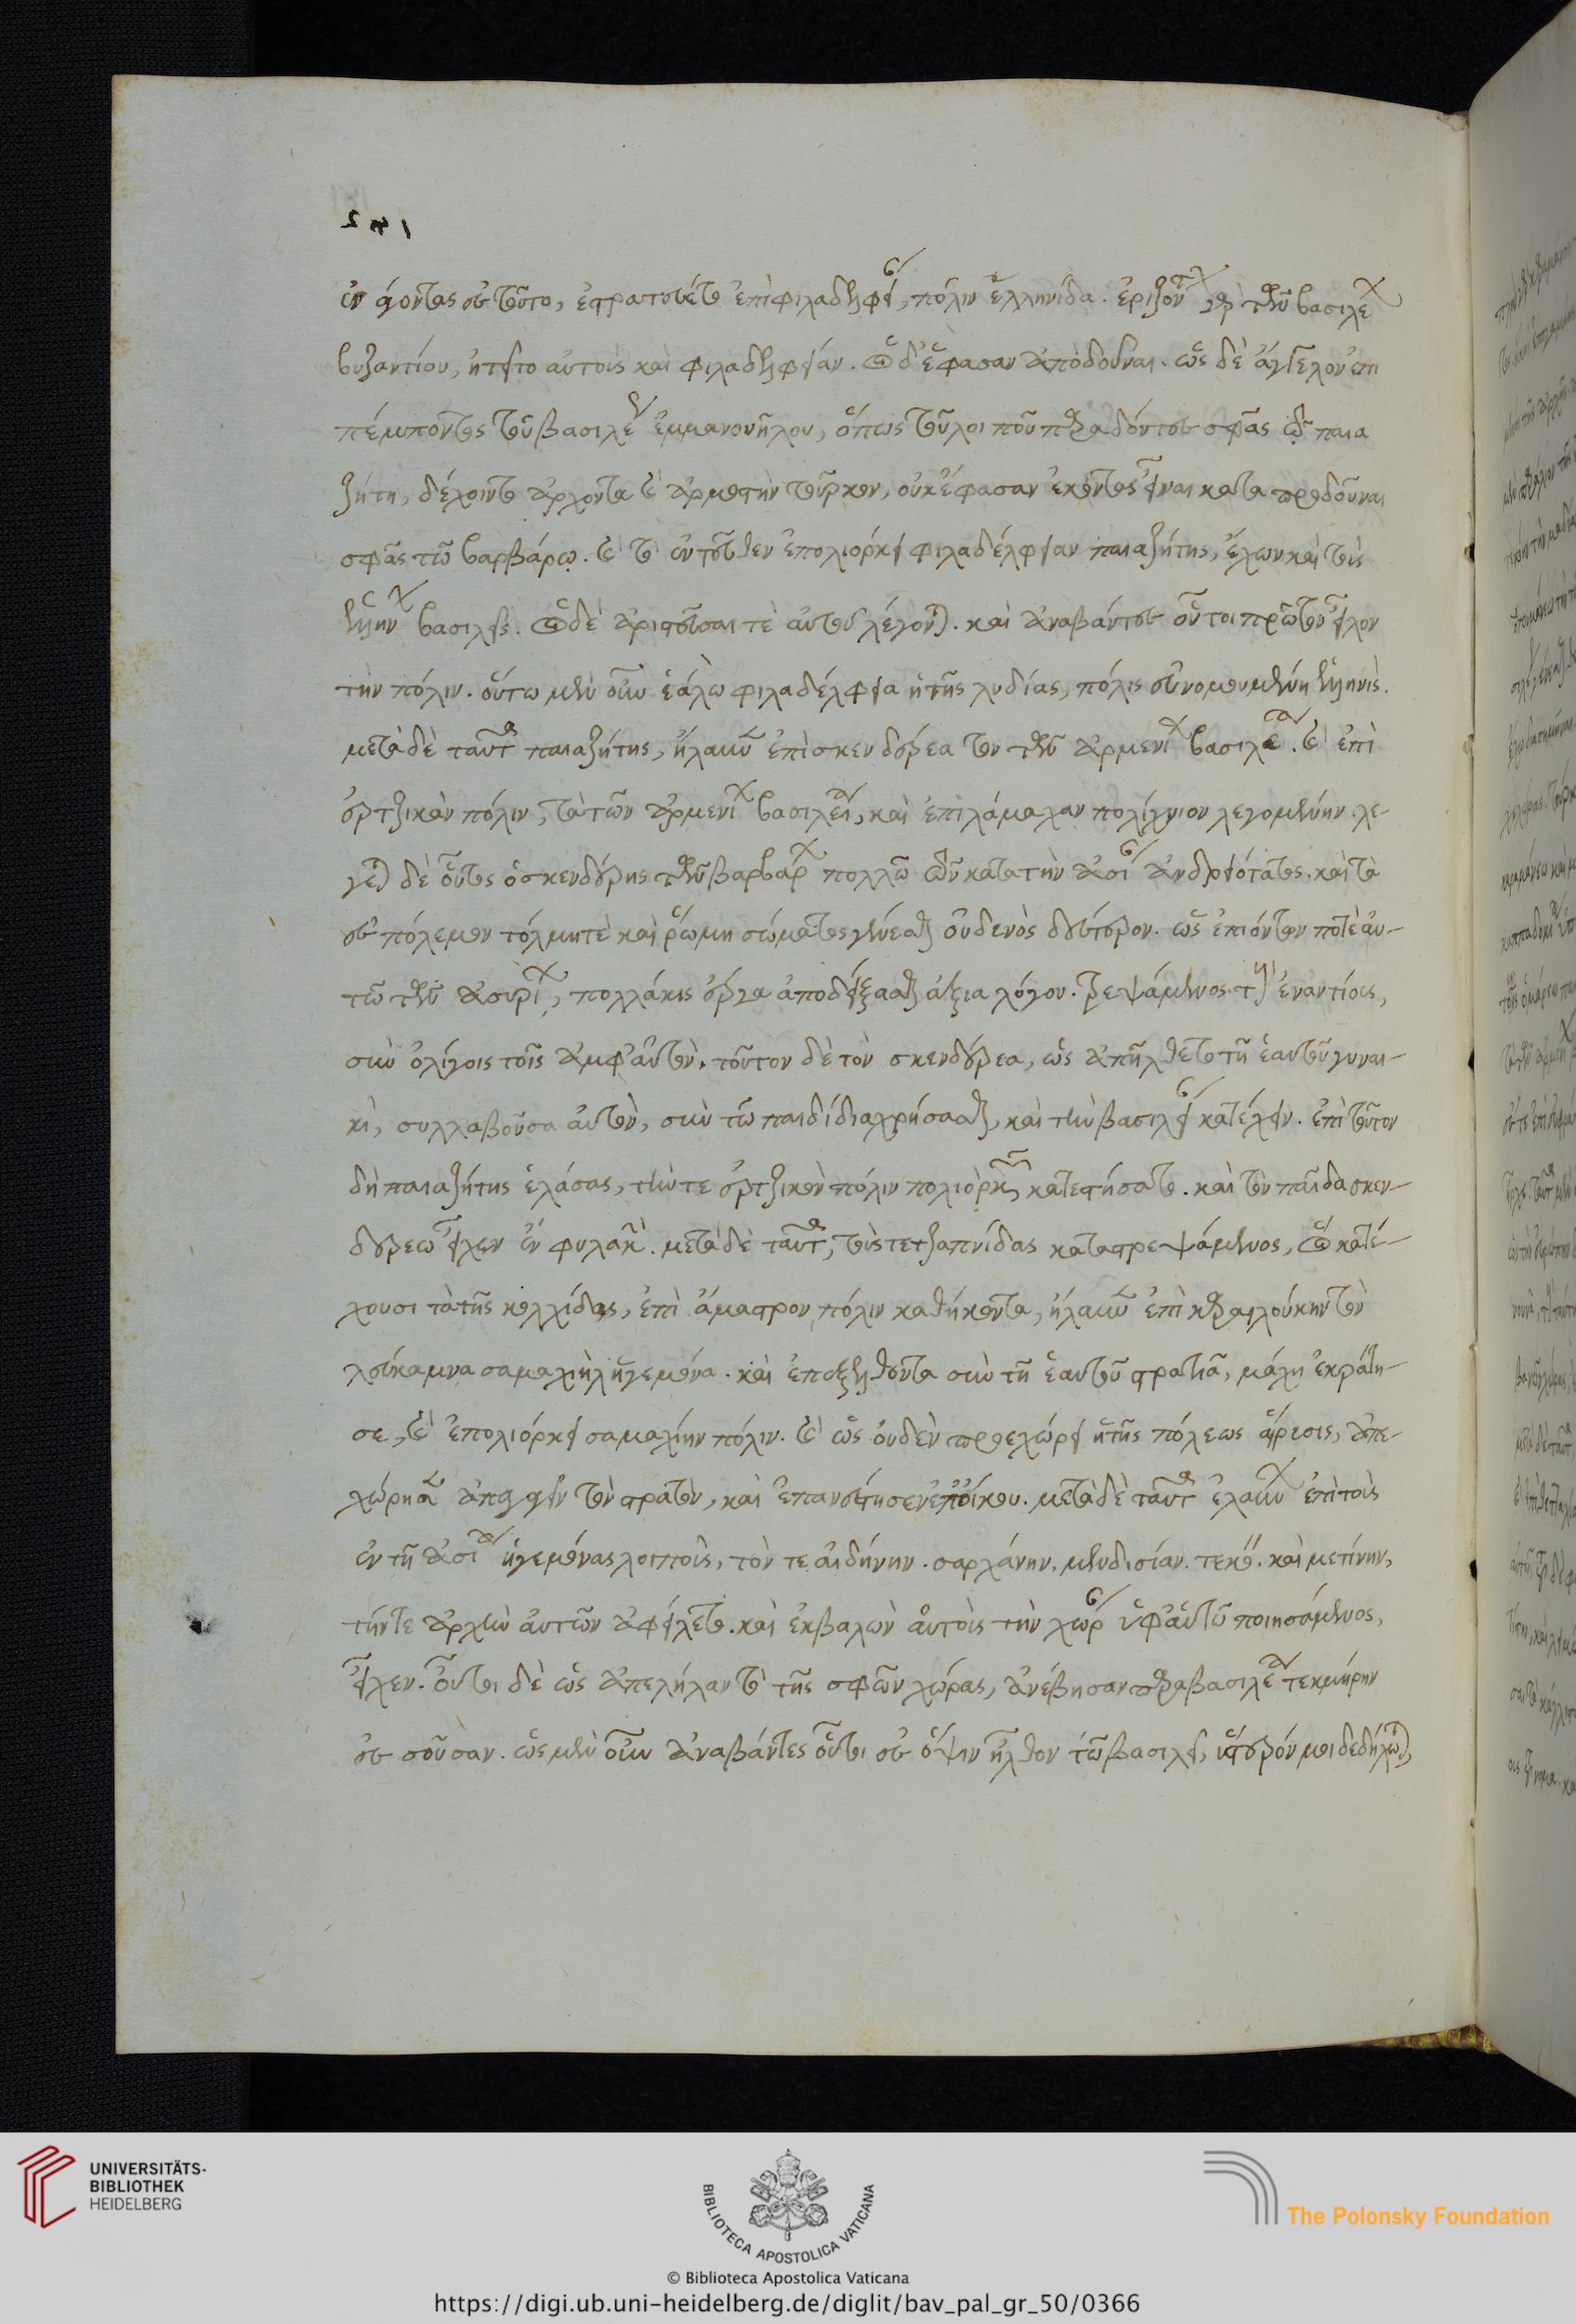 142
ἐν άγοντας ἐς τοῦτο, ἐστρατεύετο ἐπὶ φιλαδελφείας, πόλιν ἑλληνίδα. ἐρίζοντας γὰρ τοὺς βασιλεῖς
βυζαντίου, ἠτεῖτο αὐτοὺς καὶ φιλαδέλφειαν. οἱ δ' ἔφασαν ἀποδοῦναι. ὡς δὲ ἄγγελον ἐπι
πέμποντος τοῦ βασιλέως ἐμμανουήλου, ὅπως τοῦ λοιποῦ παραδόντες σφᾶς τῷ παια
ζήτῃ, δέχοιντο ἄρχοντα καὶ ἁρμοστὴν τοῦρκον, οὐκ ἔφασαν ἑκόντες εἶναι καταπροδοῦναι
σφᾶς τῷ βαρβάρῳ. καὶ τὸ ἐντεῦθεν ἐπολιόρκει φιλαδέλφειαν παιαζήτης, ἔχων καὶ τοὺς
ἑλλήνων βασιλεῖς. οἱ δὲ ἀριστεῦσαί τε αὐτοῦ λέγονται. καὶ ἀναβάντες οὗτοι πρῶτον εἷλον
τὴν πόλιν. οὕτω μὲν οὖν ἑάλω φιλαδέλφεια ἡ τῆς λυδίας, πόλις εὐνομουμένη ἑλληνίς.
μετὰ δὲ ταῦτα παιαζήτης, ἤλαυνεν ἐπὶ σκενδέρεα τὸν τῶν ἀρμενίων βασιλέα. καὶ ἐπὶ
ἐρτζικὰν πόλιν, τὰ τῶν ἀρμενίων βασίλεια, καὶ ἐπὶ λάμαχαν πολίχνιον λεγομένην. λέ-
γεται δὲ οὗτος ὁ σκενδέρης τῶν βαρβάρων πολλῷ τῶν κατὰ τὴν ἀσίαν ἀνδρειότατος. καὶ τὰ
ἐς πόλεμον τόλμῃ τὲ καὶ ῥώμῃ σώματος γενέσθαι οὐδενὸς δεύτερον. ὡς ἐπιόντων ποτὲ αὐ-
τῷ τῶν ἀσυρίων, πολλάκις ἔργα ἀποδείξασθαι ἄξια λόγου. τρεψάμενος τοὺς ἐναντίους,
σὺν ὀλίγοις τοῖς ἀμφ' αὐτὸν. τοῦτον δὲ τὸν σκενδέρεα, ὡς ἀπήχθετο τῇ ἑαυτοῦ γυναι-
κὶ, συλλαβοῦσα αὐτὸν, σὺν τῷ παιδὶ διαχρήσασθαι, καὶ τὴν βασιλείαν κατέχειν. ἐπὶ τοῦτον
δὴ παιαζήτης ἐλάσας, τήν τε ἐρτζικὰν πόλιν πολιορκῶν κατεστήσατο. καὶ τὸν παῖδα σκεν-
δέρεω εἶχεν ἐν φυλακῇ. μετὰ δὲ ταῦτα, τοὺς τε τζαπνίδας καταστρεψάμενος, οἱ κατέ-
χουσι τὰ τῆς κολχίδος, ἐπὶ ἄμαστρον πόλιν καθήκοντα, ἤλαυνεν ἐπὶ καραϊλούκην τὸν
λεύκαμνα σαμαχιὴλ ἡγεμόνα. καὶ ἐπεξελθόντα σὺν τῇ ἑαυτοῦ στρατιᾷ, μάχῃ ἐκράτη-
σε, καὶ ἐπολιόρκει σαμαχίην πόλιν. καὶ ὡς οὐδὲν προεχώρει ἡ τῆς πόλεως αἵρεσις, ἀπε-
χώρησεν ἀπάγων τὸν στρατὸν, καὶ ἐπανεύησεν ἐπ' οἴκου. μετὰ δὲ ταῦτα ἐλαύνων ἐπὶ τοὺς
ἐν τῇ ἀσίᾳ ἡγεμόνας λοιποὺς, τόν τε αἰδήνην. σαρχάνην. μενδισίαν. τεκίην. καὶ μετίνην,
τήν τε ἀρχὴν αὐτῶν ἀφείλετο. καὶ ἐκβαλὼν αὐτοὺς τὴν χώραν ὑφ' αὑτῷ ποιησάμενος,
εἶχεν. οὗτοι δὲ ὡς ἀπελήλαντο τῆς σφῶν χώρας, ἀνέβησαν παρὰ βασιλέα τεκμήρην
ἐς σοῦσαν. ὡς μὲν οὖν ἀναβάντες οὗτοι ἐς ὄψιν ἦλθον τῷ βασιλεῖ, ὕστερόν μοι δεδήλωται,
UNIVERSITÄTS-
BIBLIOTHEK
HEIDELBERG
BIBLIOTECA APOSTOLICA VATICANA
The Polonsky Foundation
© Biblioteca Apostolica Vaticana
https://digi.ub.uni-heidelberg.de/diglit/bav_pal_gr_50/0366